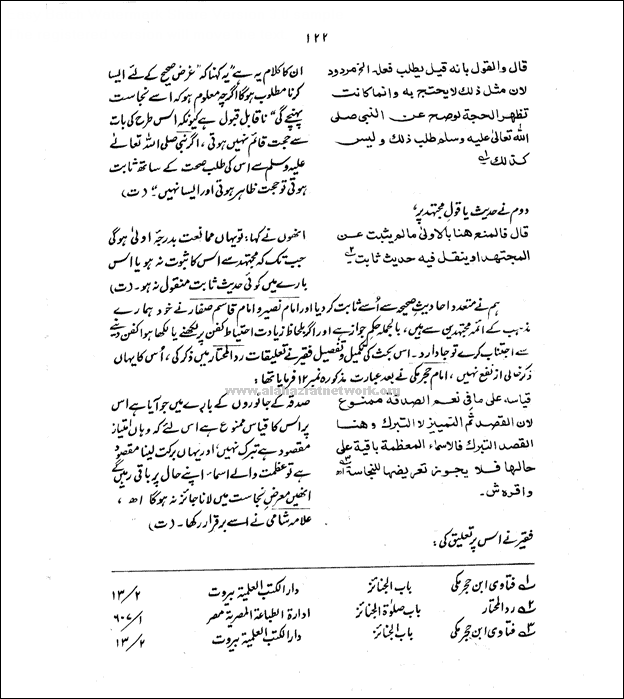 ۱۲۲
قال والقول بانه قيل يطلب فعله الخ مردود
لان مثل ذلك لا يحتج به وانما كانت
تظهر الحجة لوصح عن النبي صلى
الله تعالى عليه وسلم طلب ذلك وليس
كذلك ۱؎
ان کا کلام یہ ہے" یہ کہنا کہ" غرض صحیح کے لئے ایسا
کرنا مطلوب ہوگا اگرچہ معلوم ہو کہ اسے نجاست
پہنچے گی" ناقابل قبول ہے کیونکہ اس طرح کی بات
سے حجت قائم نہیں ہوتی، اگر نبی صلی اللہ تعالٰی
علیہ وسلم سے اس کی طلب صحت کے ساتھ ثابت
ہوتی تو حجت ظاہر ہوتی اور ایسا نہیں"۔ (ت)
دوم نے حدیث یا قول مجتہد پر،
قال فالمنع هنا بالاولى مالم يثبت عن
المجتهد او ينقل فيه حديث ثابت ۲؎
انھوں نے کہا: تو یہاں ممانعت بدرجہ اولٰی ہوگی
جب تک کہ مجتہد سے اس کا ثبوت نہ ہو یا اس
بارے میں کوئی حدیث ثابت منقول نہ ہو۔ (ت)
ہم نے متعدد احادیث صحیحہ سے اُسے ثابت کر دیا اور امام نصیر و امام قاسم صفار نے خود ہمارے
مذہب کے ائمہ مجتہدین سے ہیں، بالجملہ حکم جواز ہے اور اگر بلحاظ زیادت احتیاط کفن پر لکھنے یا لکھا ہوا کفن دینے
سے اجتناب کرے تو جا دارد۔ اس بحث کی تکمیل و تفصیل فقیر نے تعلیقات ردالمحتار میں ذکر کی، اُس کا یہاں
ذکر خالی از نفع نہیں، امام حجر مکی نے بعد عبارت مذکورہ نمبر ۱۲ فرمایا تھا:
www.alahazratnetwork.org
قياسه على ما فى نعم الصدقة ممنوع
لان القصد ثم التميز لا التبرك وهنا
القصد التبرك فالاسماء المعظمة باقية على
حالها فلا يجوز تعريضها للنجاسة ۳؎ اھ
واقره ش۔
صدقہ کے جانوروں کے بارے میں جو آیا ہے اس
پر اس کا قیاس ممنوع ہے اس لئے کہ وہاں امتیاز
مقصود ہے تبرک نہیں، اور یہاں برکت لینا مقصود
ہے تو عظمت والے اسماء اپنے حال پر باقی رہیں گے
انھیں معرض نجاست میں لانا جائز نہ ہوگا اھ،
علامہ شامی نے اسے برقرار رکھا۔ (ت)
فقیر نے اس پر تعلیق کی:
۱؎ فتاوٰی ابن حجر مکی باب الجنائز دارالکتب العلمیۃ بیروت ۱۳/۲
۲؎ ردالمحتار باب صلٰوۃ الجنائز ادارۃ الطباعۃ المصریۃ مصر ۶۰۷/۱
۳؎ فتاوٰی ابن حجر مکی باب الجنائز دارالکتب العلمیۃ بیروت ۱۳/۲